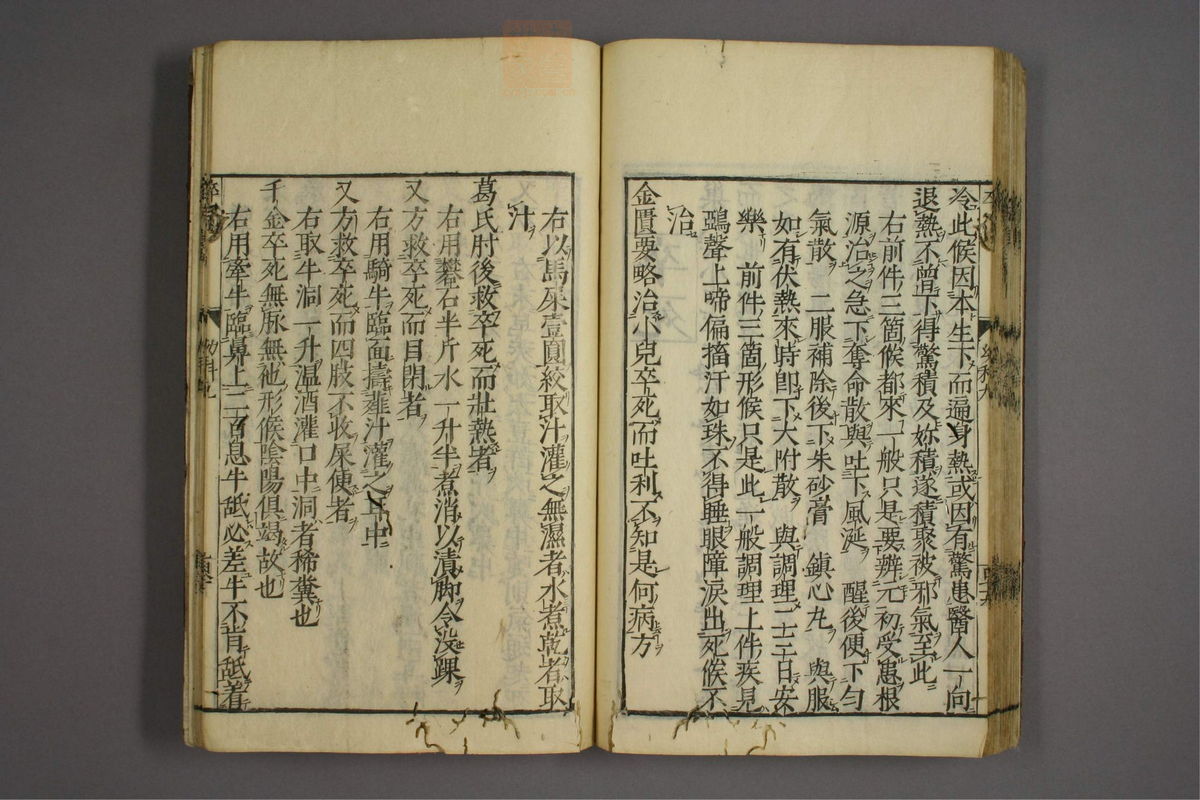 冷此候因本生下而遍身熱或因有驚患醫人一向
退熱不曾下得驚積及妳積遂積聚被邪氣至此
右前件三箇候都來一般只是要辨元初受患根
源治之急下奪命散與吐下風涎 醒後便下勻
氣散 二服補除後下朱砂膏 鎮心丸 與服
如有伏熱來時即下大附散 與調理二十三日安
樂 前件三箇形候只是此一般調理上件疾見
鵶聲上啼偏搐汗如珠不得睡眼障淚出死候不
治
金匱要略治小兒卒死而吐利不知是何病方
右以馬屎壹圓絞取汁灌之無濕者水煮乾者取
汁
葛氏肘後救卒死而壯熱者
右用礬石半斤水一升半煮消以漬脚令沒踝
又方救卒死而目閉者
右用騎牛臨面擣薤汁灌之耳中
又方救卒死而四肢不收屎便者
右取牛洞一升温酒灌口中洞者稀糞也
千金卒死無脉無他形候陰陽俱竭故也
右用牽牛臨鼻上二百息牛舐必差牛不肯舐着